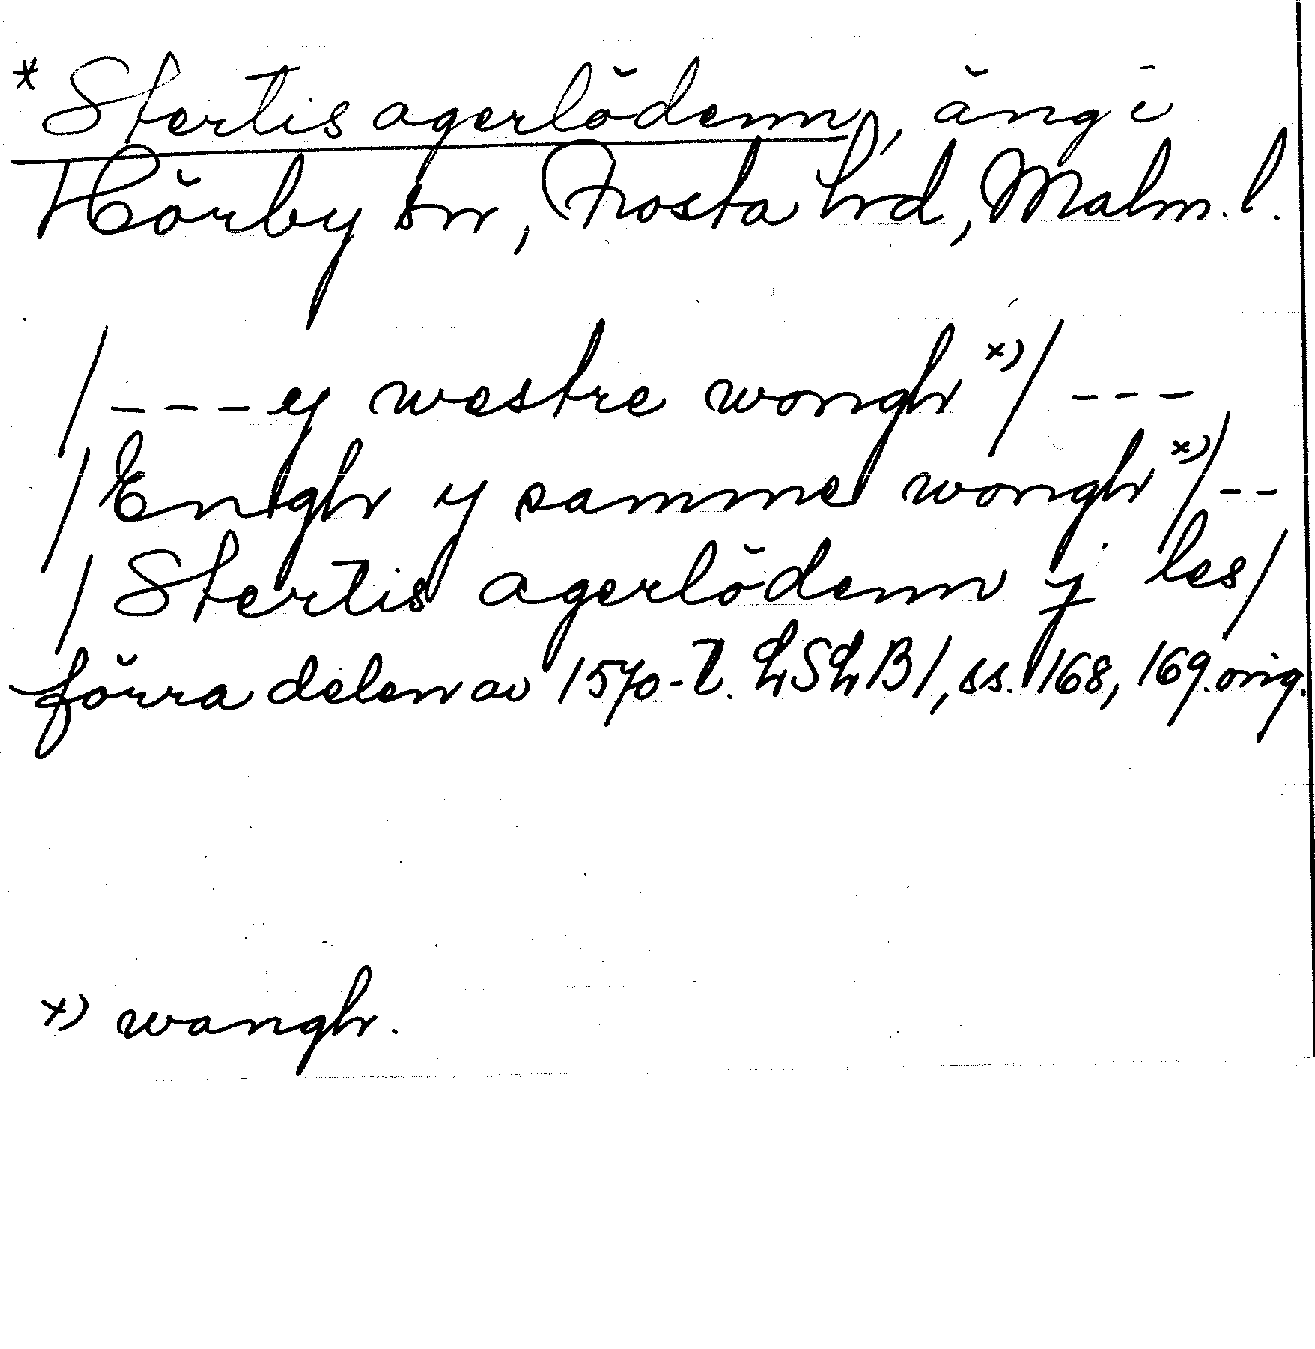 * Stertis agerlödenn, äng i
Hörby sn, Frosta hd, Malm. l.
/ - - - y westre wongh x) / - - -
/ Engh y samme wongh x) / - -
/ Stertis agerlödenn j les /
förra delen av 1570-t. LSLB1, ss. 168, 169. orig.
x) wangh.